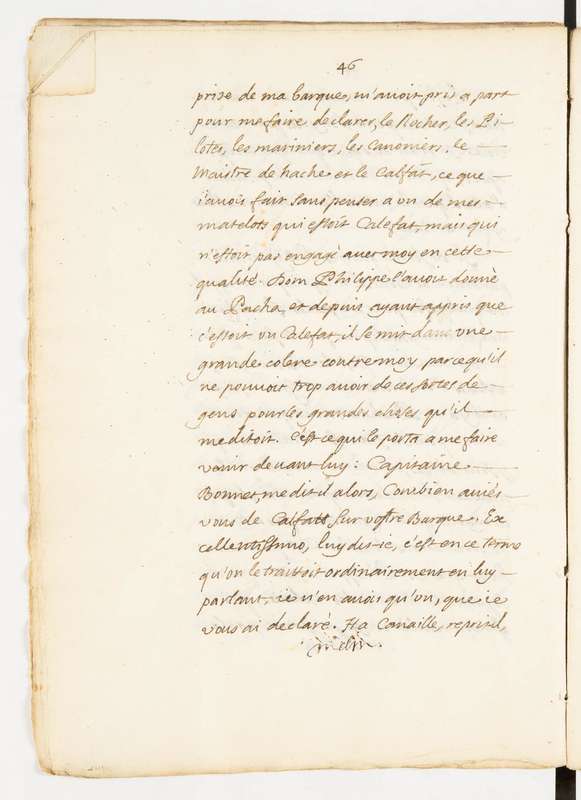 46
prise de ma barque, m'avoit pris a part
pour me faire declarer, le Nocher, les Pi-
lotes, les mariniers, les Canoniers, le
Maistre de hache et le Calfat, ce que
i'avois fait sans penser a un de mes
matelots qui estoit Calefat, mais qui
n'estoit pas engagé avec moy en cette
qualité. Dom Philippe l'avoit donné
au Pacha, et depuis ayant appris que
c'estoit un Calefat, il se mit dans une
grande colere contre moy parcequ'il
ne pouvoit trop avoir de ces sortes de
gens pour les grandes choses qu'il
meditoit. C'est ce qui le porta a me faire
venir devant luy: Capitaine
Bonnet, me dit il alors, Combien aviés
vous de Calfatt sur vostre Barque. Ex
cellentissimo, luy dis-ie, c'est en ce terme
qu'on le traittoit ordinairement en luy
parlant, ie n'en avois qu'un, que ie
vous ai declaré. Ha Canaille, reprit il,